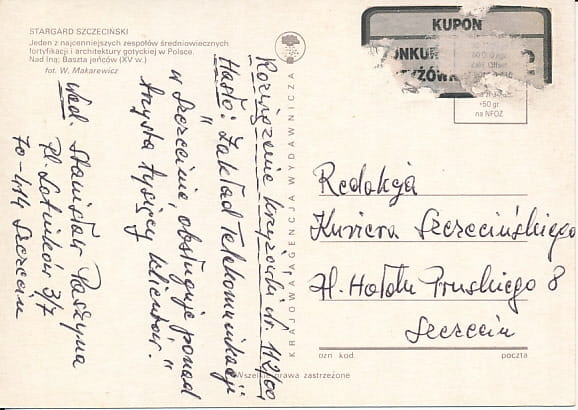 STARGARD SZCZECIŃSKI
Jeden z najcenniejszych zespołów średniowiecznych
fortyfikacji i architektury gotyckiej w Polsce.
Nad Iną; Baszta jeńców (XV w.)
fot. W. Makarewicz
Rozwiązanie krzyżówki nr. 112/00
Hasło: Zakład Telekomunikacji
w Szczecinie, obsługuje ponad
trzysta tysięcy klientów."
Nad. Stanisław Paszyna
Pl. Lotników 3/7
70-414 Szczecin
KRAJOWA AGENCJA WYDAWNICZA
KUPON
+50 gr
na NFOZ
Redakcja
Kuriera Szczecińskiego
Pl. Hołdu Pruskiego 8
Szczecin
ozn kod poczta
Wszelkie prawa zastrzeżone